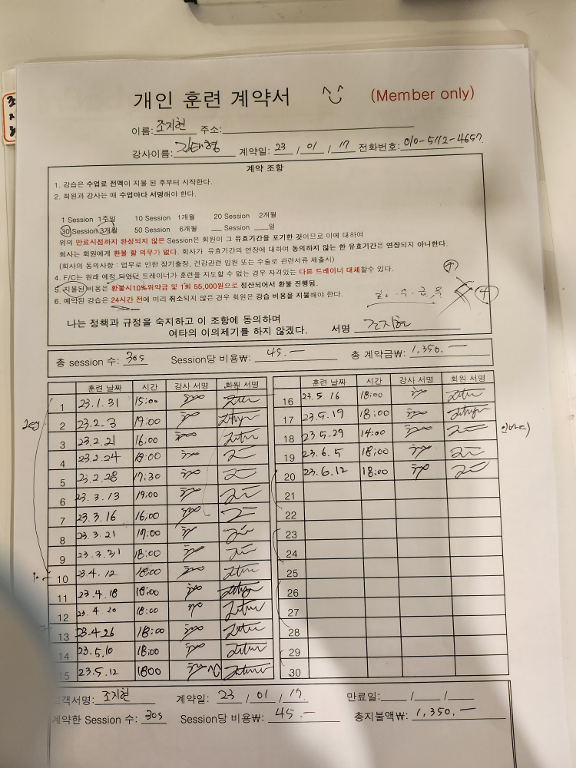 개인 훈련 계약서
(Member only)
이름: 조지현 주소:
강사이름: 김태형 계약일: 23 / 01 / 17 전화번호: 010-572-4657
계약 조항
1. 강습은 수업료 전액이 지불 된 후부터 시작한다.
2. 회원과 강사는 매 수업마다 서명해야 한다.
1 Session 1주일 10 Session 1개월 20 Session 2개월
30 Session 3개월 50 Session 6개월 Session 일
위의 만료시점까지 완상되지 않은 Session은 회원이 그 유효기간을 포기한 것이므로 이에 대하여
회사는 회원에게 환불 할 의무가 없다. 회사가 유효기간의 연장에 대하여 동의하지 않는 한 유효기간은 연장되지 아니한다.
(회사의 동의사항 : 업무로 인한 장기출장, 건강관련 입원 또는 수술로 관련서류 제출시)
4. F/C는 원래 예정 되었던 트레이너가 훈련을 지도할 수 없는 경우 자격있는 다른 트레이너 대체할수 있다.
5. 지불된 비용은 환불시10%위약금 및 1회 55,000원으로 정산되어서 환불 진행됨.
6. 예약된 강습은 24시간 전에 미리 취소되지 않은 경우 회원은 강습 비용을 지불해야 한다.
나는 정책과 규정을 숙지하고 이 조항에 동의하며
여타의 이의제기를 하지 않겠다. 서명 조지현
총 session 수: 30s Session당 비용₩: 45.— 총 계약금₩: 1,350.—
훈련 날짜 시간 강사 서명 회원 서명 훈련 날짜 시간 강사 서명 회원 서명
1 23.1.31 15:00 16 23.5.16 18:00
2 23.2.3 19:00 17 23.5.19 18:00
3 23.2.21 16:00 18 23.5.29 14:00
4 23.2.24 19:00 19 23.6.5 18:00
5 23.2.28 17:30 20 23.6.12 18:00
6 23.3.13 19:00 21
7 23.3.16 16:00 22
8 23.3.21 19:00 23
9 23.3.31 18:00 24
10 23.4.12 18:00 25
11 23.4.18 18:00 26
12 23.4.20 18:00 27
13 23.4.26 18:00 28
14 23.5.10 18:00 29
15 23.5.12 18:00 30
고객서명: 조지현 계약일: 23 / 01 / 17 만료일: / /
계약한 Session 수: 30s Session당 비용₩: 45.— 총지불액₩: 1,350.—